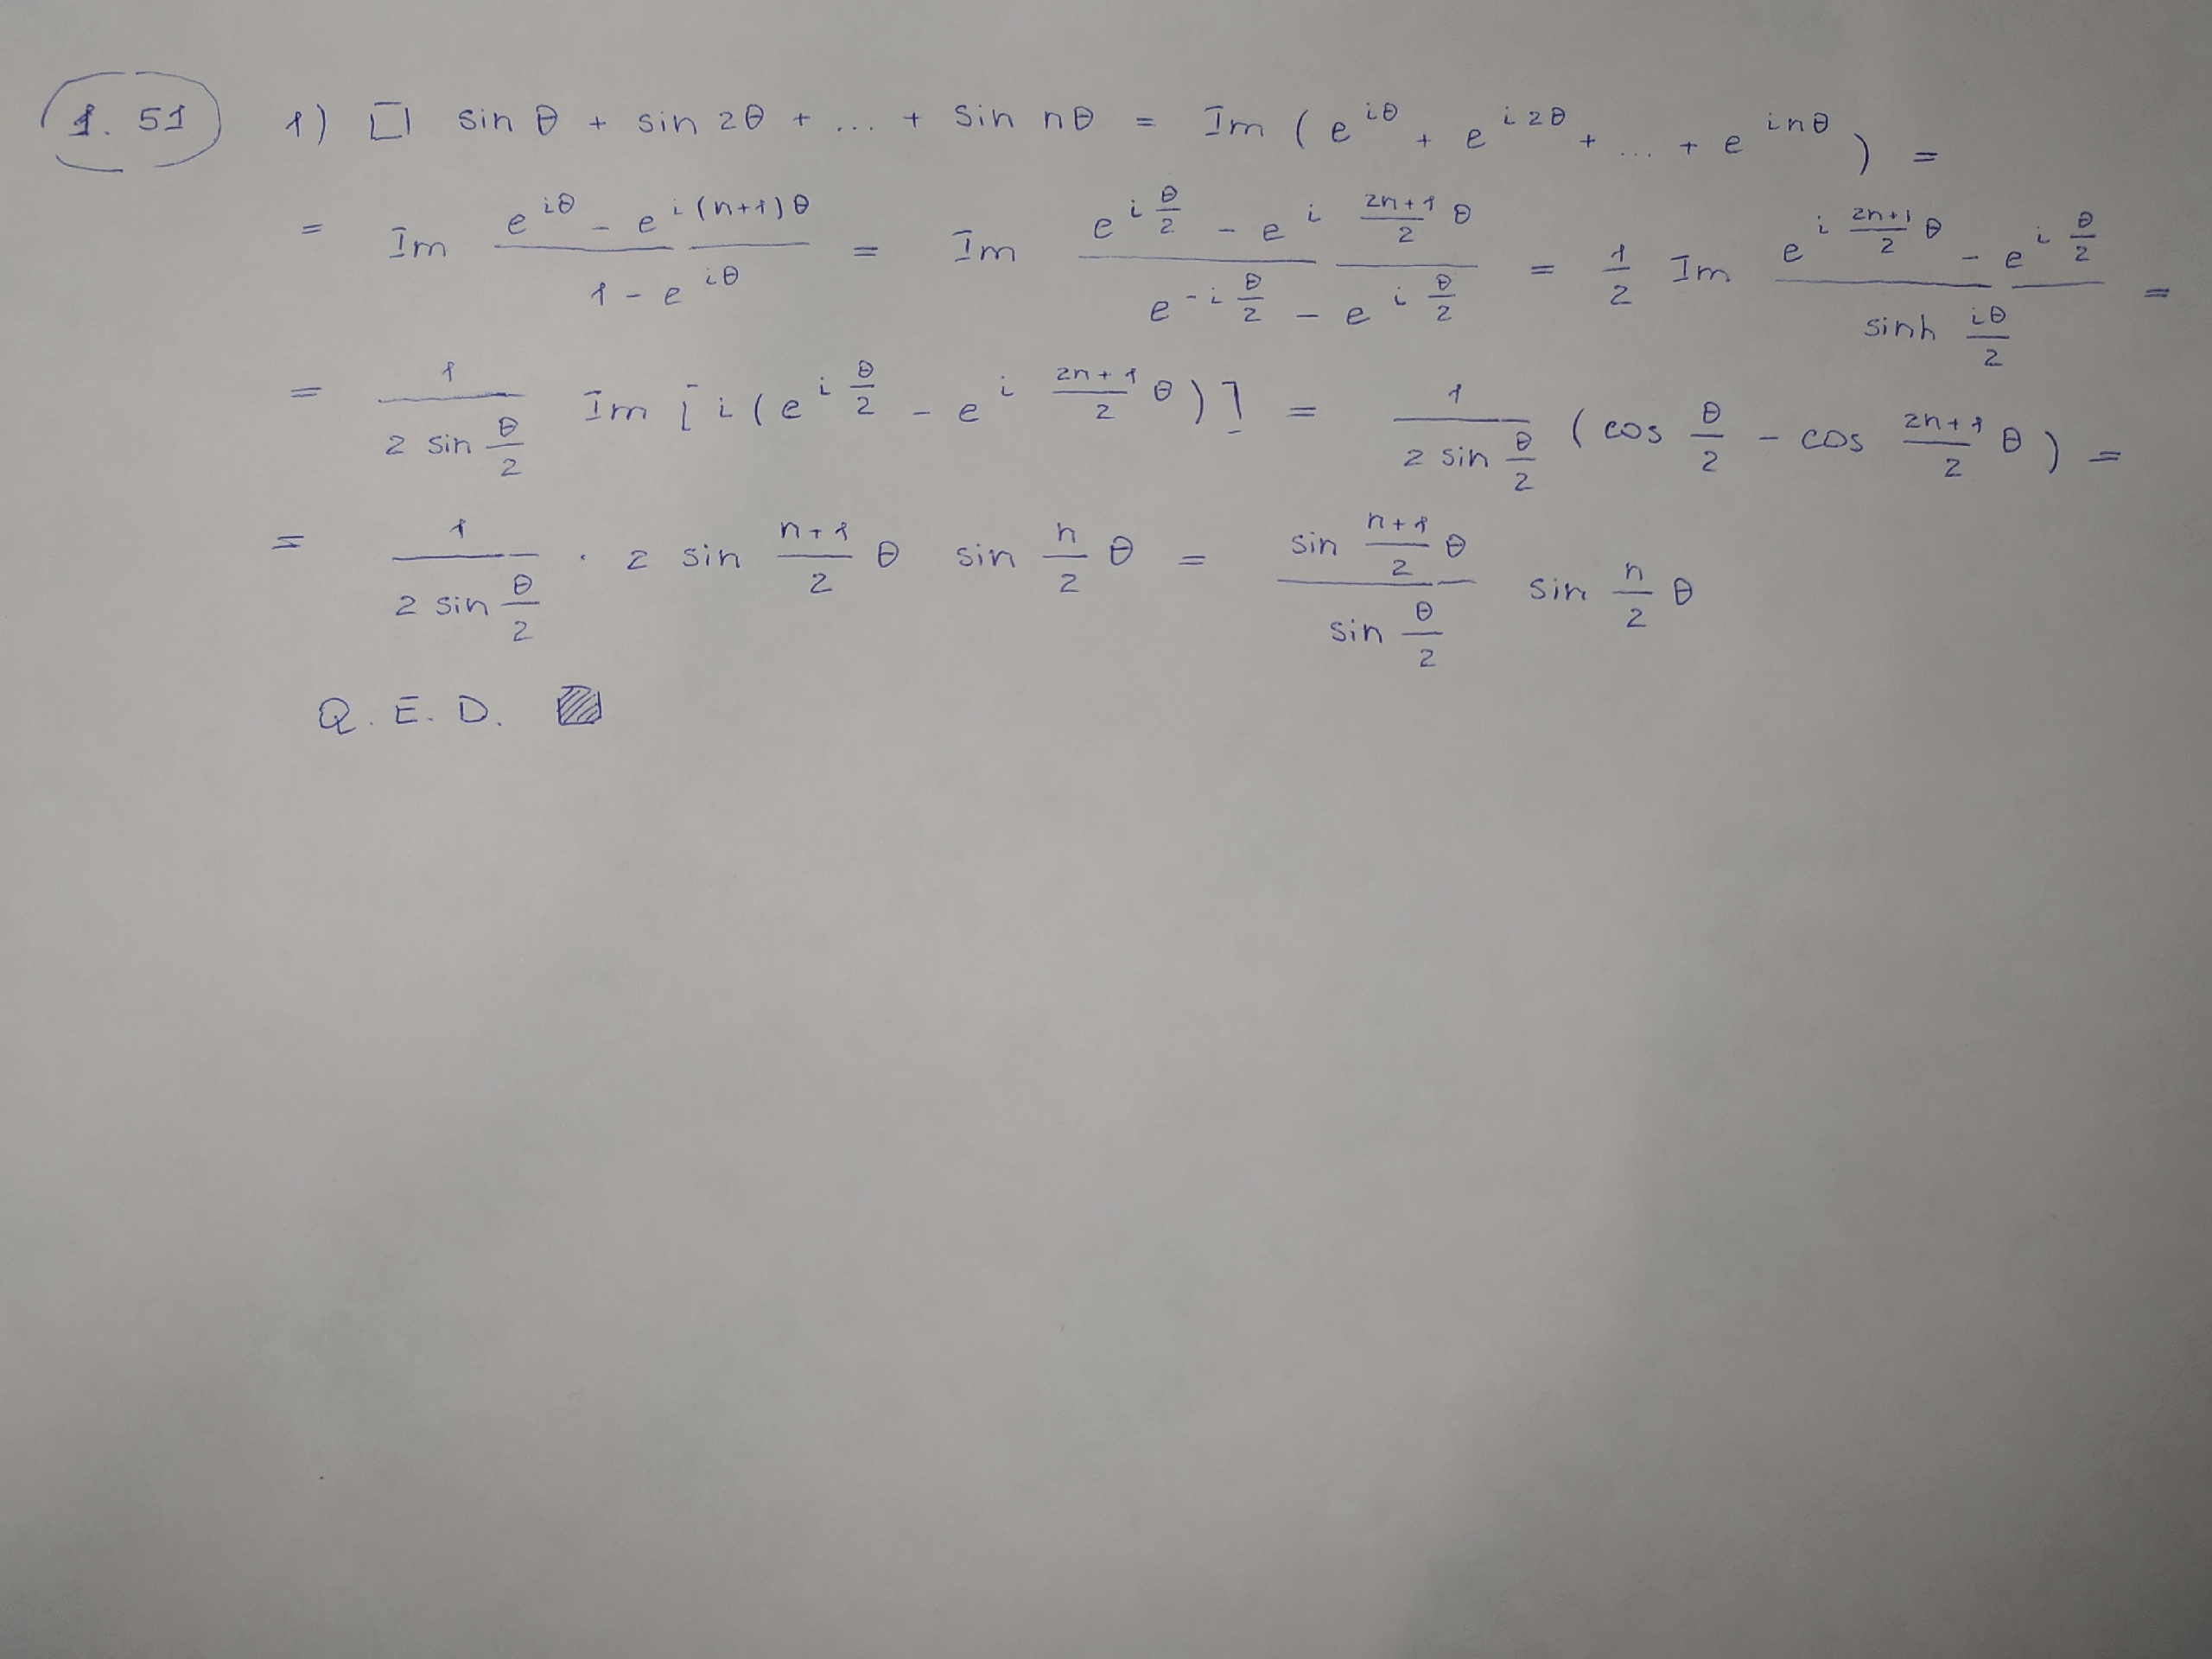 1.51 1) □ sin θ + sin 2θ + ... + sin nθ = Im (e^{iθ} + e^{i2θ} + ... + e^{inθ}) =
= Im \frac{e^{iθ} - e^{i(n+1)θ}}{1 - e^{iθ}} = Im \frac{e^{i\frac{θ}{2}} - e^{i\frac{2n+1}{2}θ}}{e^{-i\frac{θ}{2}} - e^{i\frac{θ}{2}}} = \frac{1}{2} Im \frac{e^{i\frac{2n+1}{2}θ} - e^{i\frac{θ}{2}}}{sinh \frac{iθ}{2}} =
= \frac{1}{2 sin \frac{θ}{2}} Im [i(e^{i\frac{θ}{2}} - e^{i\frac{2n+1}{2}θ})] = \frac{1}{2 sin \frac{θ}{2}} (cos \frac{θ}{2} - cos \frac{2n+1}{2} θ) =
= \frac{1}{2 sin \frac{θ}{2}} · 2 sin \frac{n+1}{2} θ sin \frac{n}{2} θ = \frac{sin \frac{n+1}{2} θ}{sin \frac{θ}{2}} sin \frac{n}{2} θ
Q.E.D. ▨